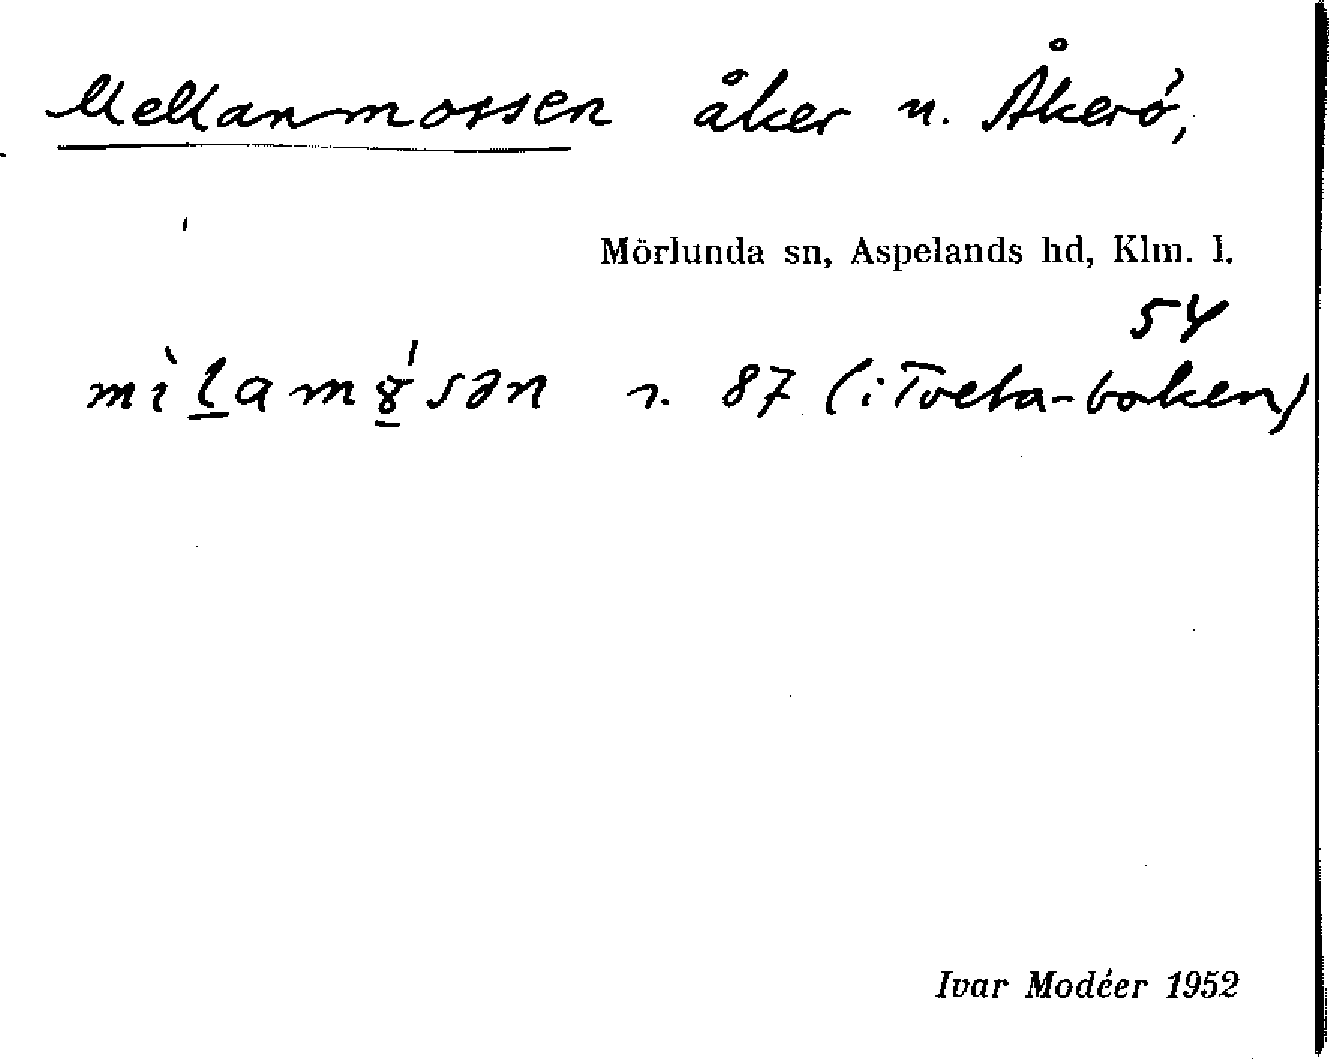 Mellanmossen åker n. Åkerö,
Mörlunda sn, Aspelands hd, Klm. l.
54
mìl̲amɣ̲́sən n. 87 (i Tveta-boken)
Ivar Modéer 1952